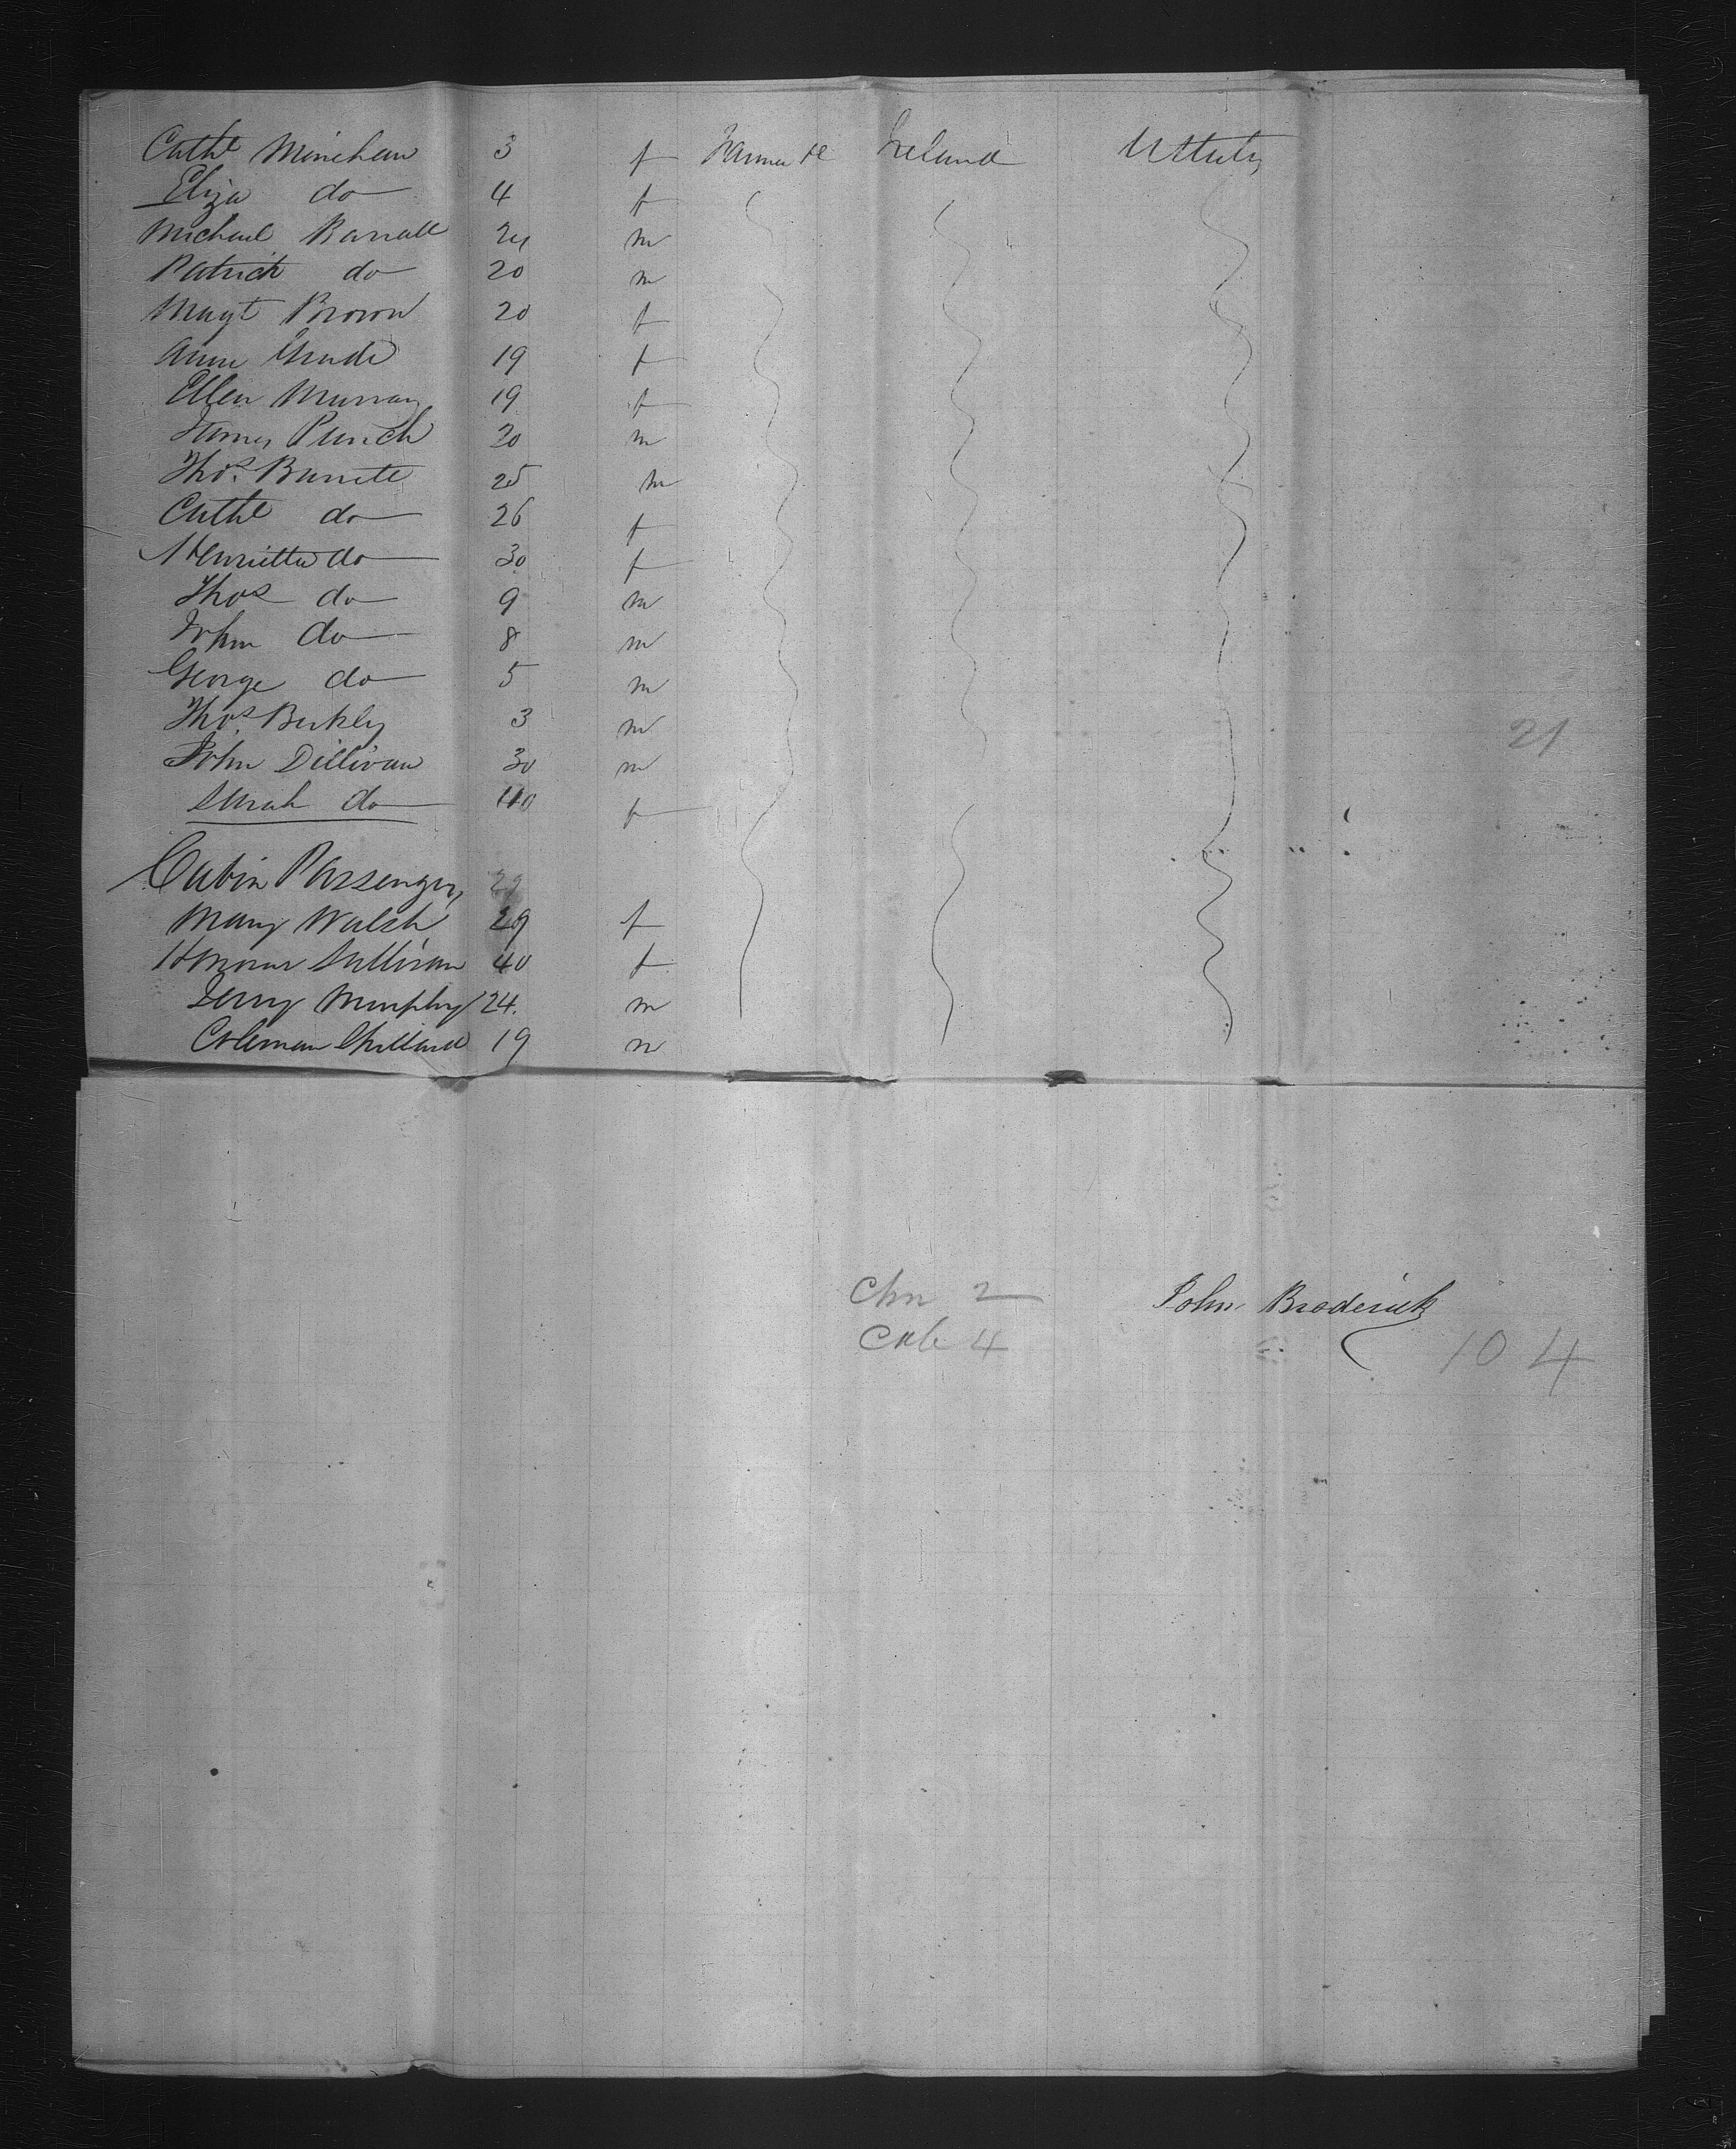 Cathe Minehan 3 f Farmer &c Ireland U States
Eliza do 4 f
Michael Barrall 24 m
Patrick do 20 m
Magt Brown 20 f
Anne 19 f
Ellen Murray 19 f
James Punch 20 m
Thos. 25 m
Cathe do 26 f
Henrietta do 30 f
Thos do 9 m
John do 8 m
George do 5 m
Thos. Berkly 3 m
21
John Dillivan 30 m
Sarah do 40 f
Cabin Passengers 29
Mary Walsh 29 f
Honora Sullivan 40 f
Jerry Murphy 24. m
Coleman 19 m
Chn 2
John Broderick
Cab 4
104